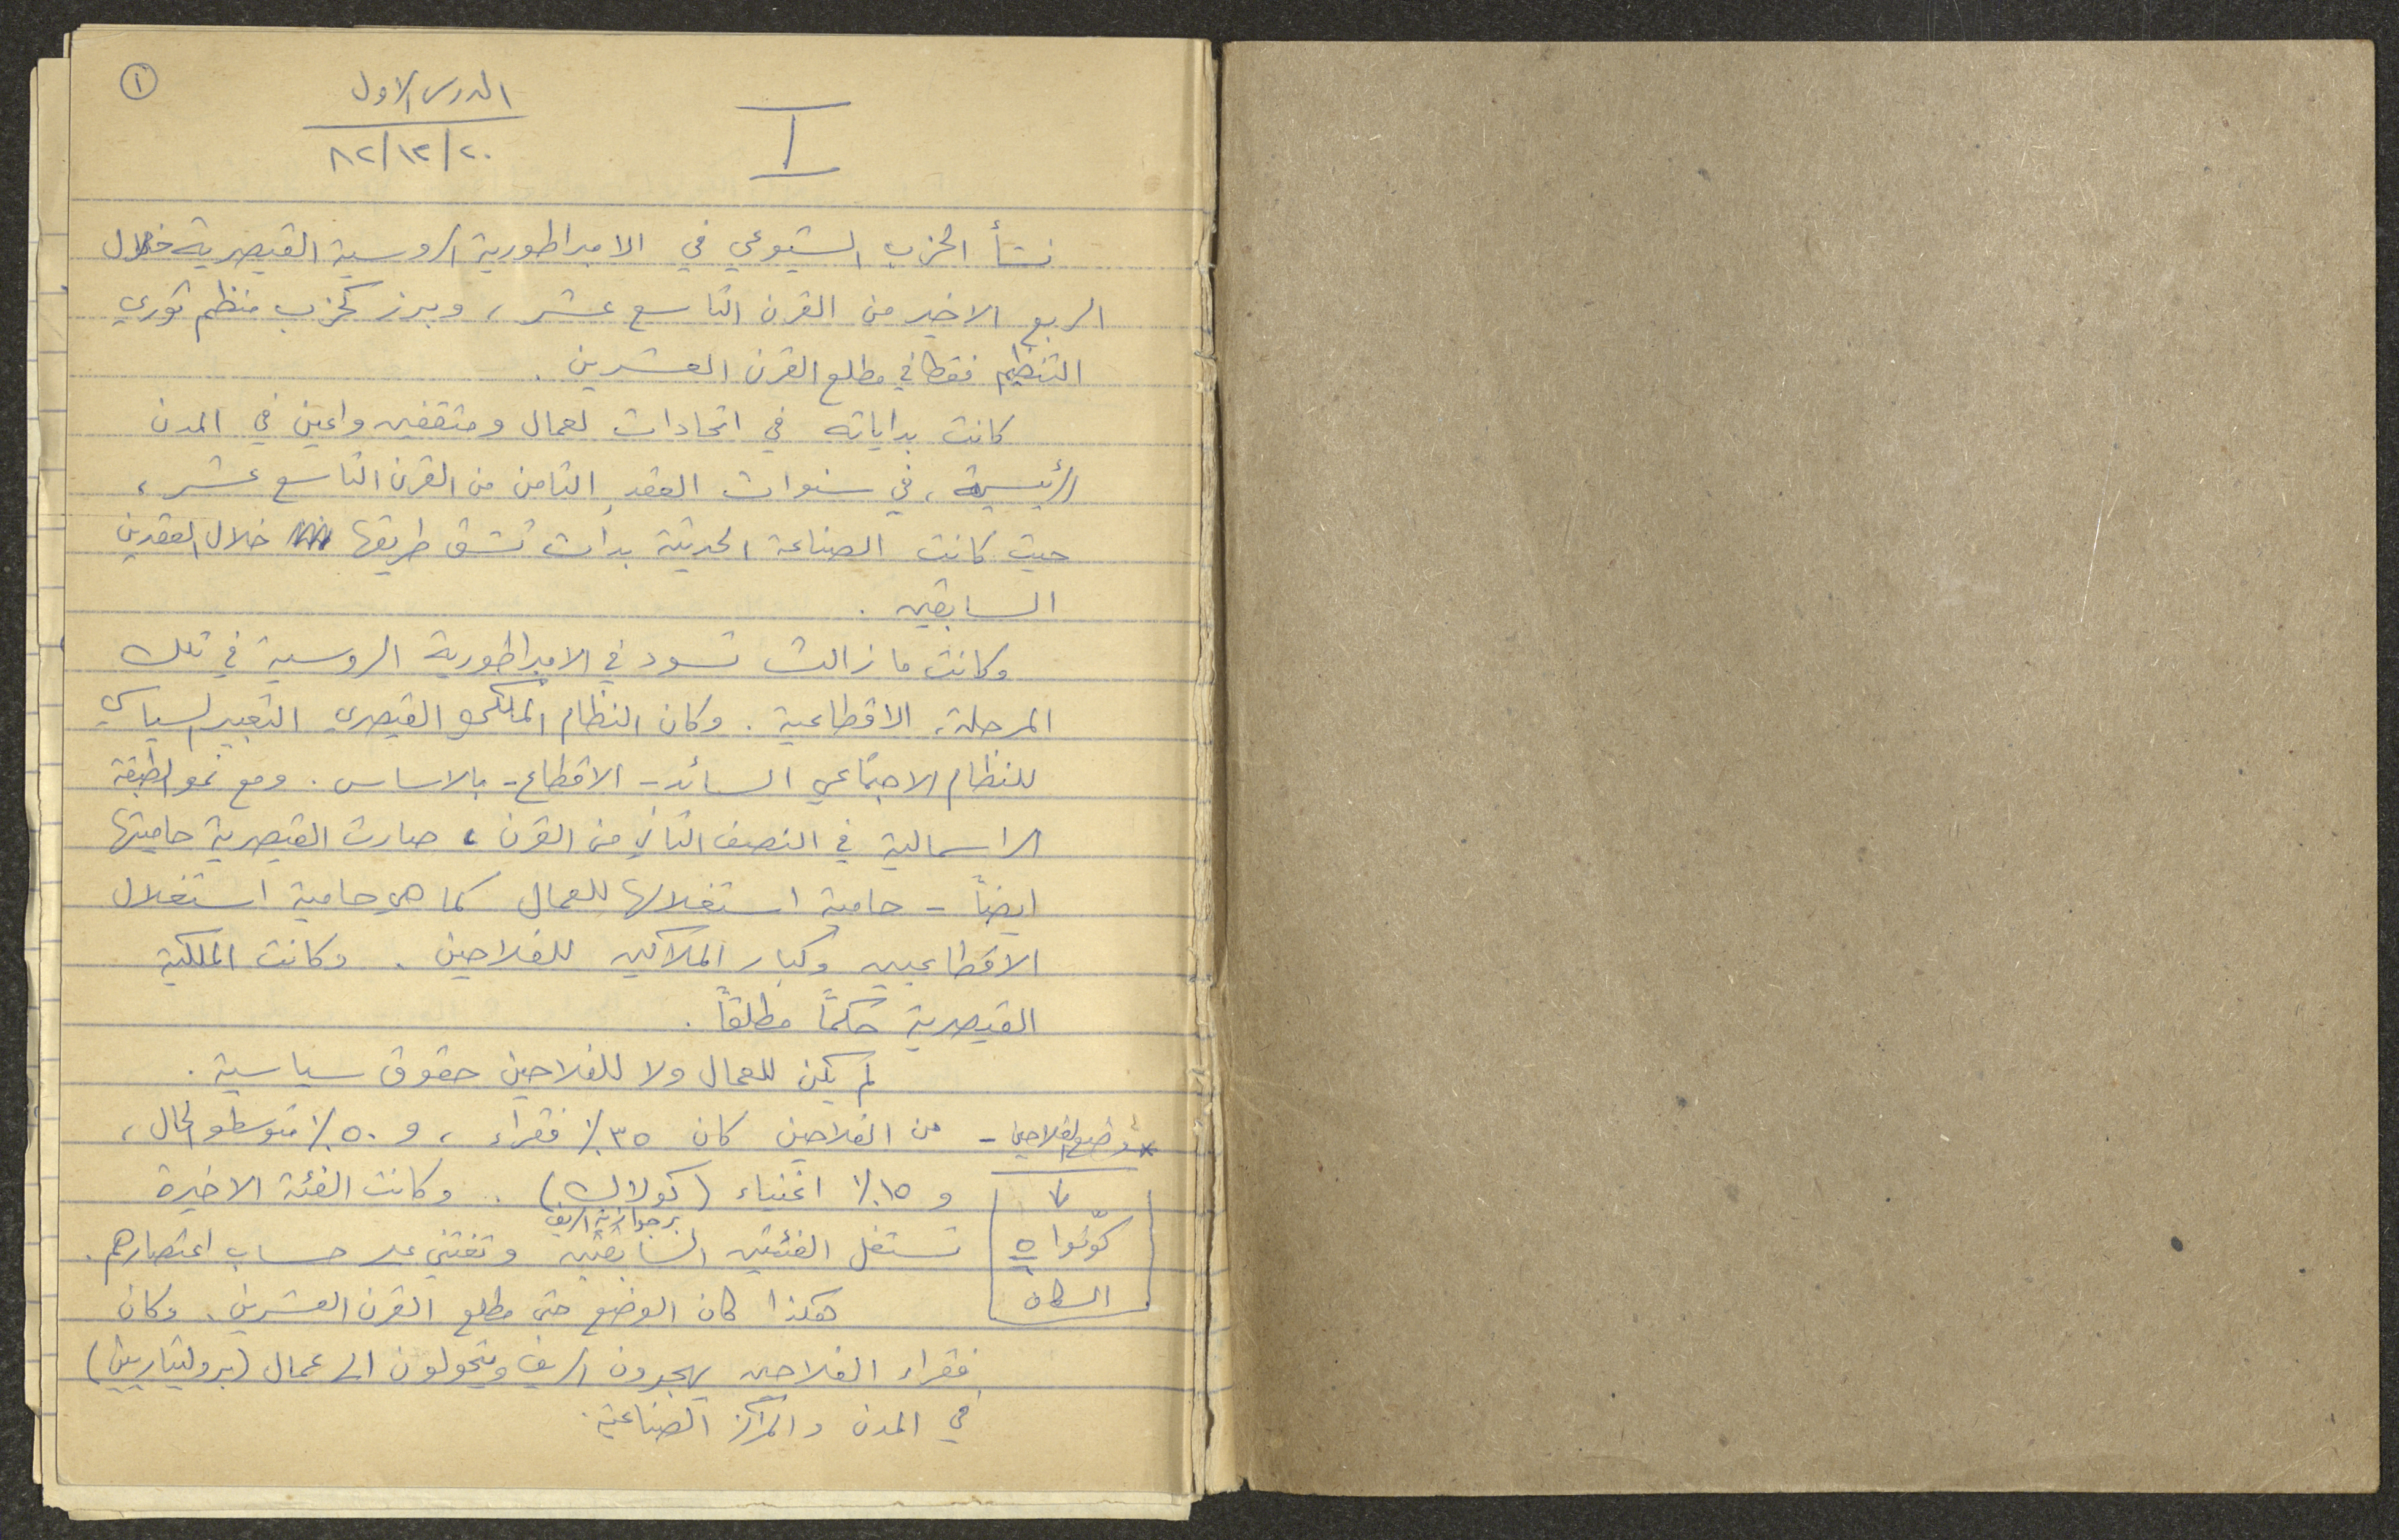 ١
الدرس الاول
٢٠/١٢/٨٢
I
نشأ الحزب الشيوعي في الامبراطورية الروسية القيصرية خلال
الربع الاخير من القرن التاسع عشر، وبرز كحزب منظم ثوري
التنظيم فقط في مطلع القرن العشرين.
كانت بداياته في اتحادات لعمال ومثقفين واعين في المدن
الرئيسية، في سنوات العقد الثامن من القرن التاسع عشر،
حيث كانت الصناعة الحديثة بدأت تشق طريقها خلال العقدين
السابقين.
وكانت ما زالت تسود في الامبراطورية الروسية في تلك
المرحلة، الاقطاعية. وكان النظام الملكي القيصري التعبير السياسي
للنظام الاجتماعي السائد - الاقطاع - بالاساس. ومع نمو الطبقة
الراسمالية في النصف الثاني من القرن، صارت القيصرية حاميتها
ايضاً - حامية استغلالها للعمال كما هي حامية استغلال
الاقطاعيين وكبار الملاكين للفلاحين. وكانت الملكية
القيصرية حكماً مطلقاً.
لم يكن للعمال ولا للفلاحين حقوق سياسية.
* وضع الفلاحين - من الفلاحين كان ٣٥٪ فقراء، و ٥٠٪ متوسطو الحال،
و ١٥٪ اغنياء (كولاك). وكانت الفئة الاخيرة
برجوازية الريف
تستغل الفئتين السابقتين وتغتني على حساب اعتصارهم.
كوّنوا
السكان
هكذا كان الوضع حتى مطلع القرن العشرين. وكان
فقراء الفلاحين يهجرون الريف ويتحولون الى عمال (بروليتاريين)
في المدن والمراكز الصناعية.